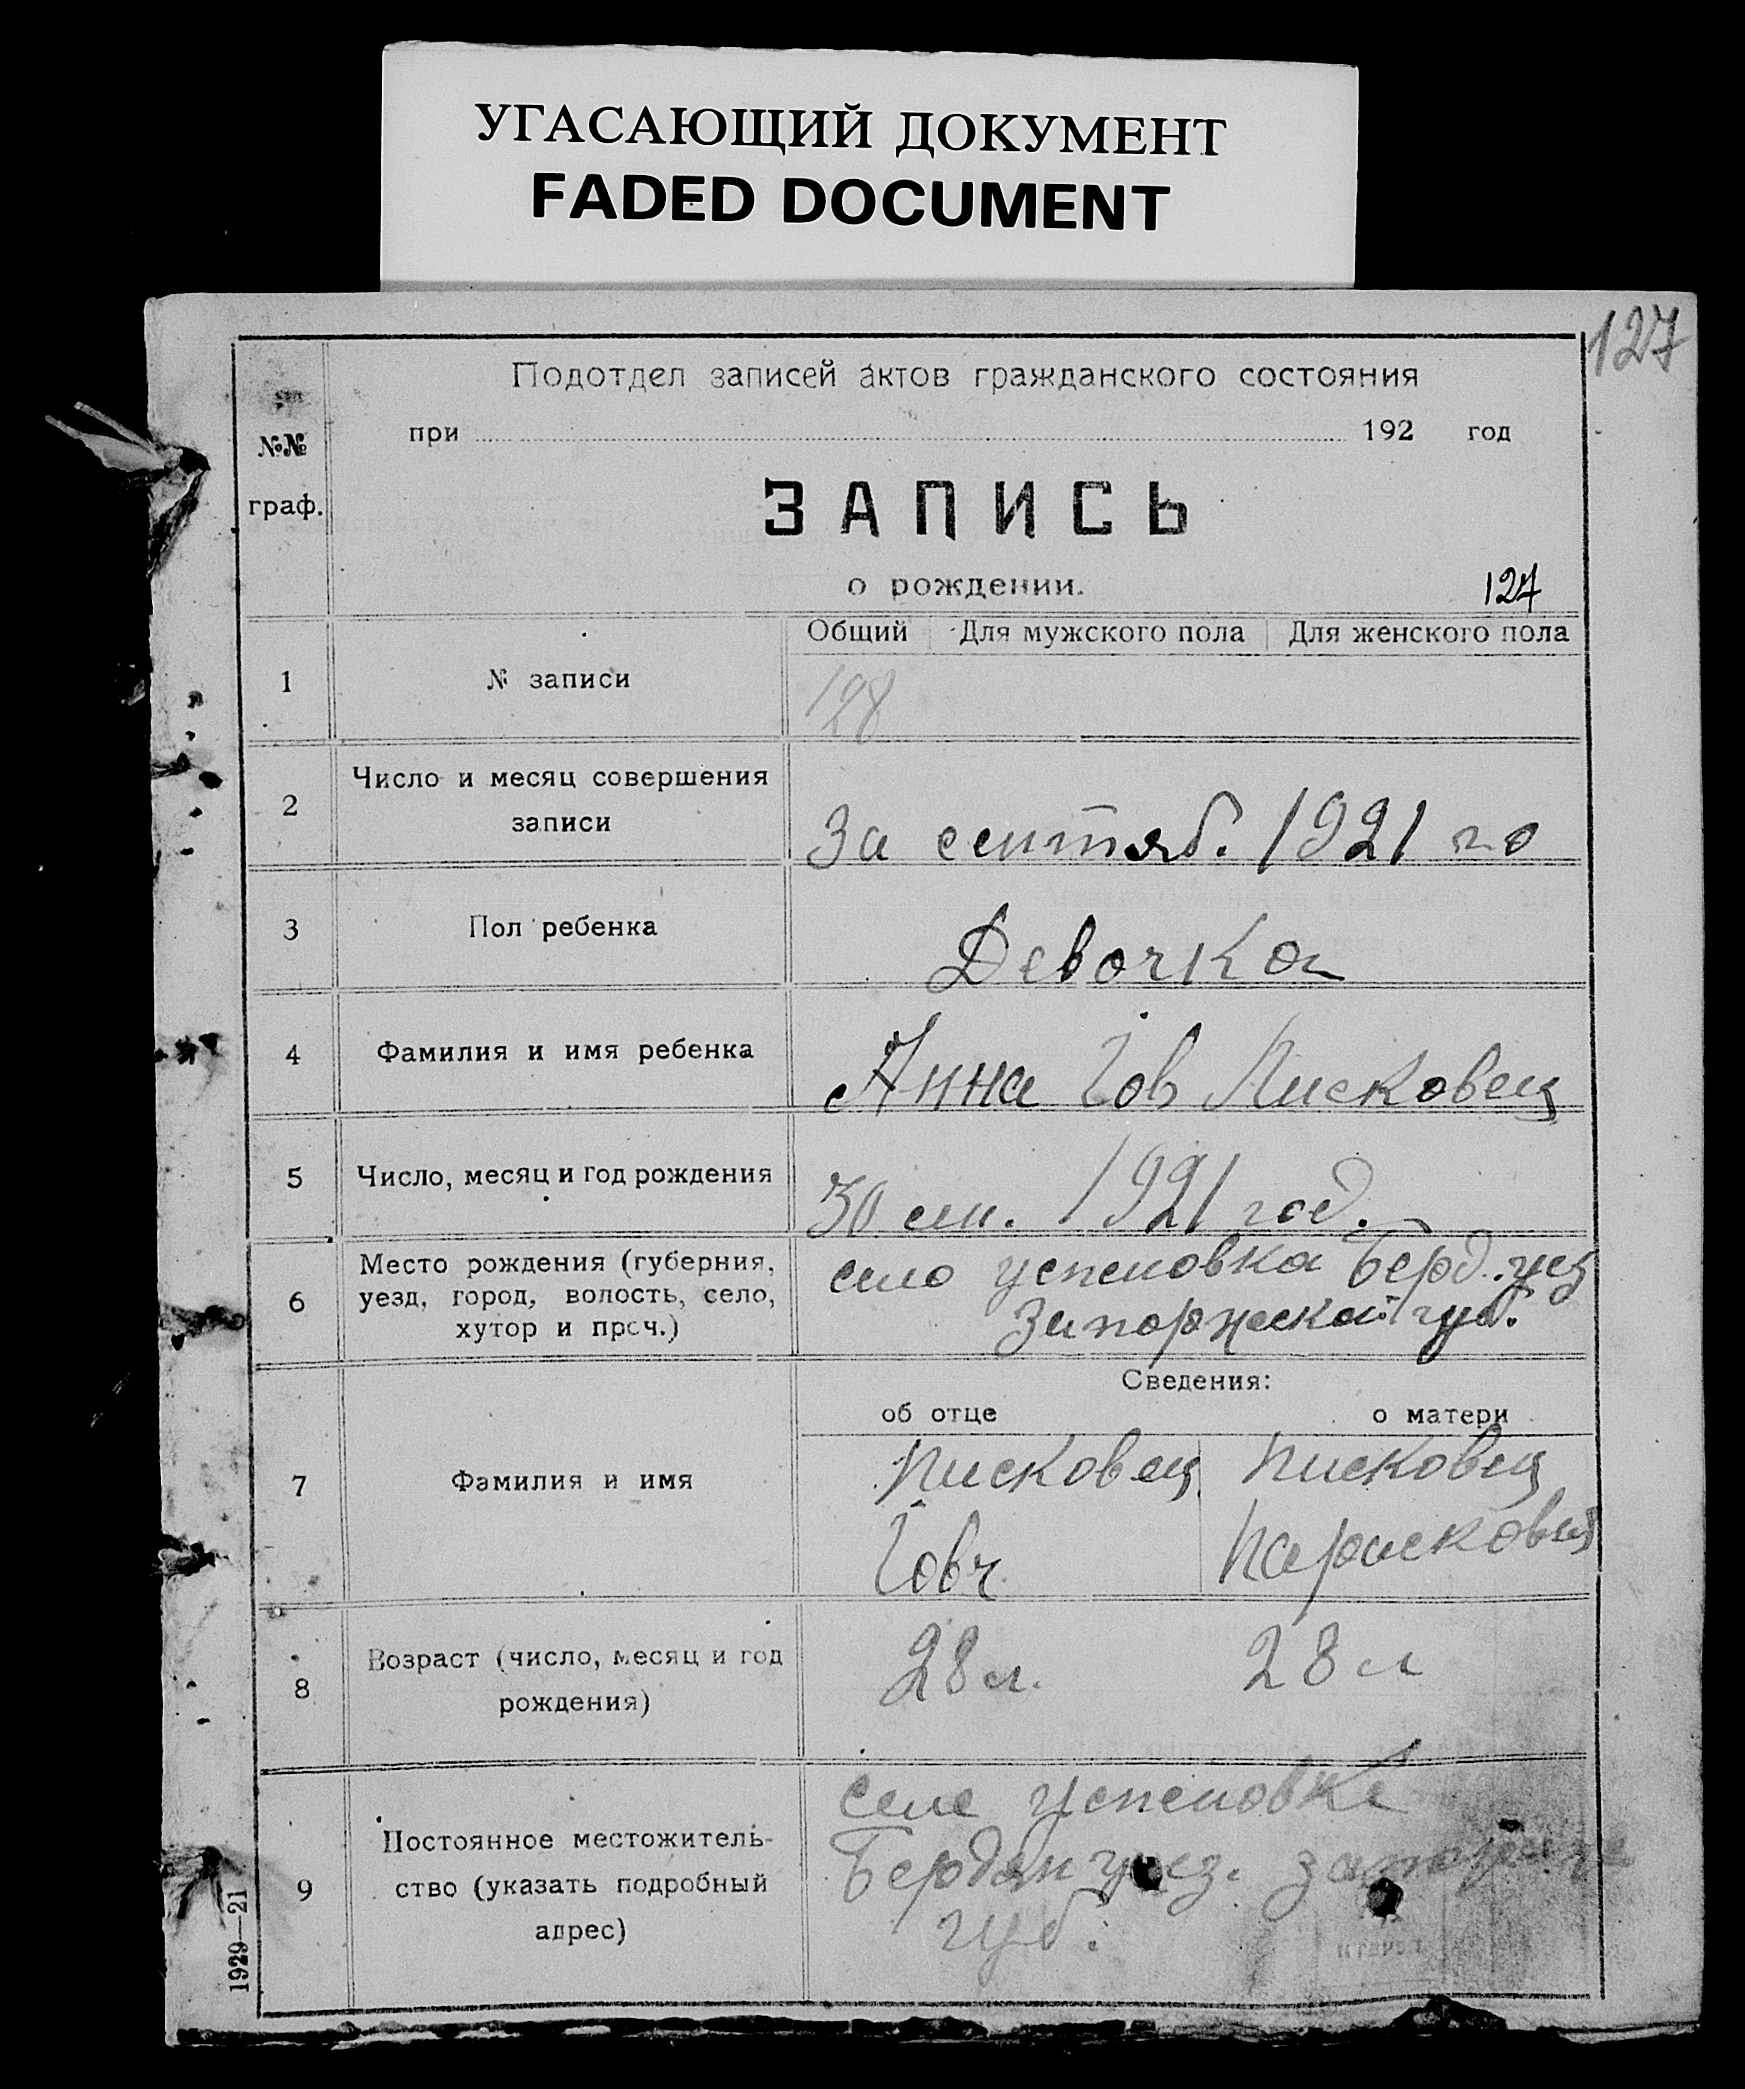 УГАСАЮЩИЙ ДОКУМЕНТ
FADED DOCUMENT
127
Подотдел записей актов гражданского состояния
№№
граф.
при 192 год
ЗАПИСЬ
о рождении.
127
Общий Для мужского пола Для женского пола
1 № записи 128
2 Число и месяц совершения
записи
За сентяб. 1921 го
3 Пол ребенка Девочка
4 Фамилия и имя ребенка Анна Іов Писковец
5 Число, месяц и год рождения 30 сен. 1921 год.
6 Место рождения (губерния,
уезд, город, волость, село,
хутор и проч.)
село успеновка Берд. уез
Запоржской губ.
Сведения:
об отце о матери
7 Фамилия и имя
Писковец Писковец
Іовъ
8 Возраст (число, месяц и год
рождения)
28 л. 28 л
9 Постоянное местожитель-
ство (указать подробный
адрес)
селе успеновке
Бердян уез.
губ.
1929—21